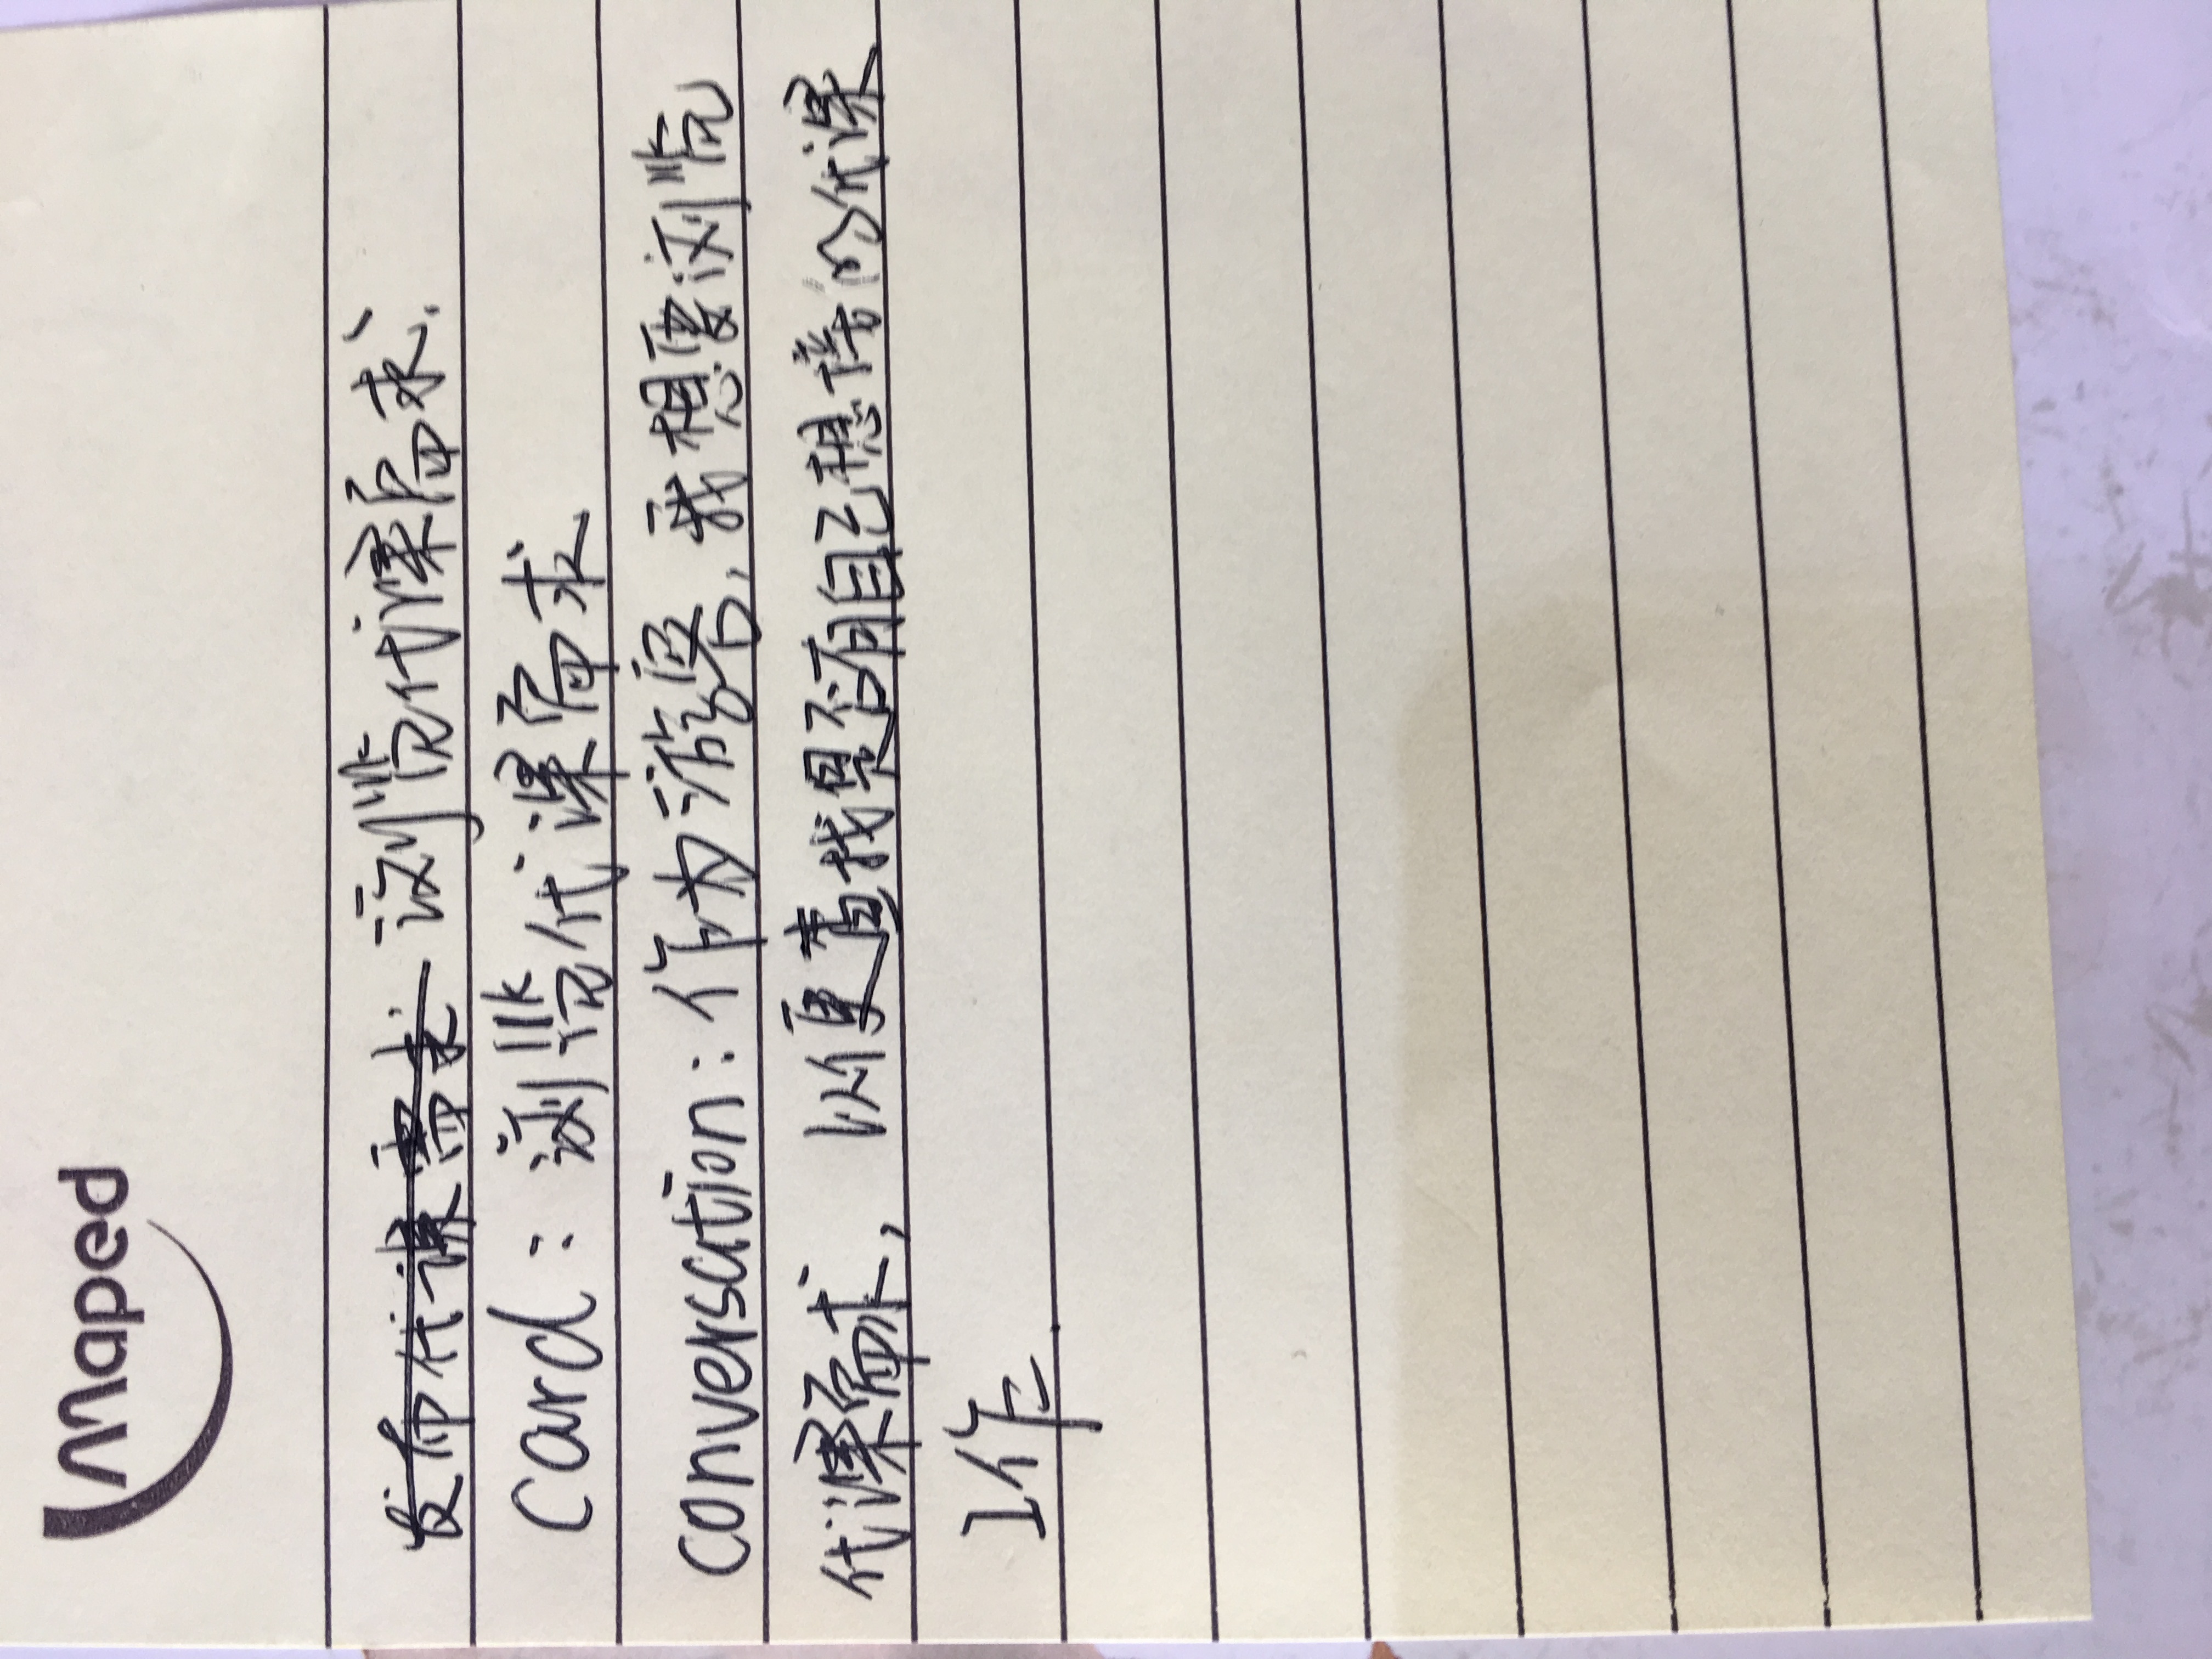 Maped
发布代课需求 浏览代课需求.
card：浏览代课需求
conversation：作为游客，我想要浏览
代课需求，以便查找是否有自己想接的代课
工作.